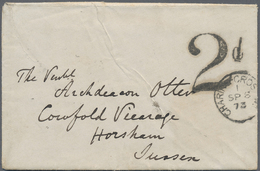 2d
CHARING CROSS
1
SP 8
73
The Venble
Archdeacon Otter
Cowfold Vicarage
Horsham
Sussex